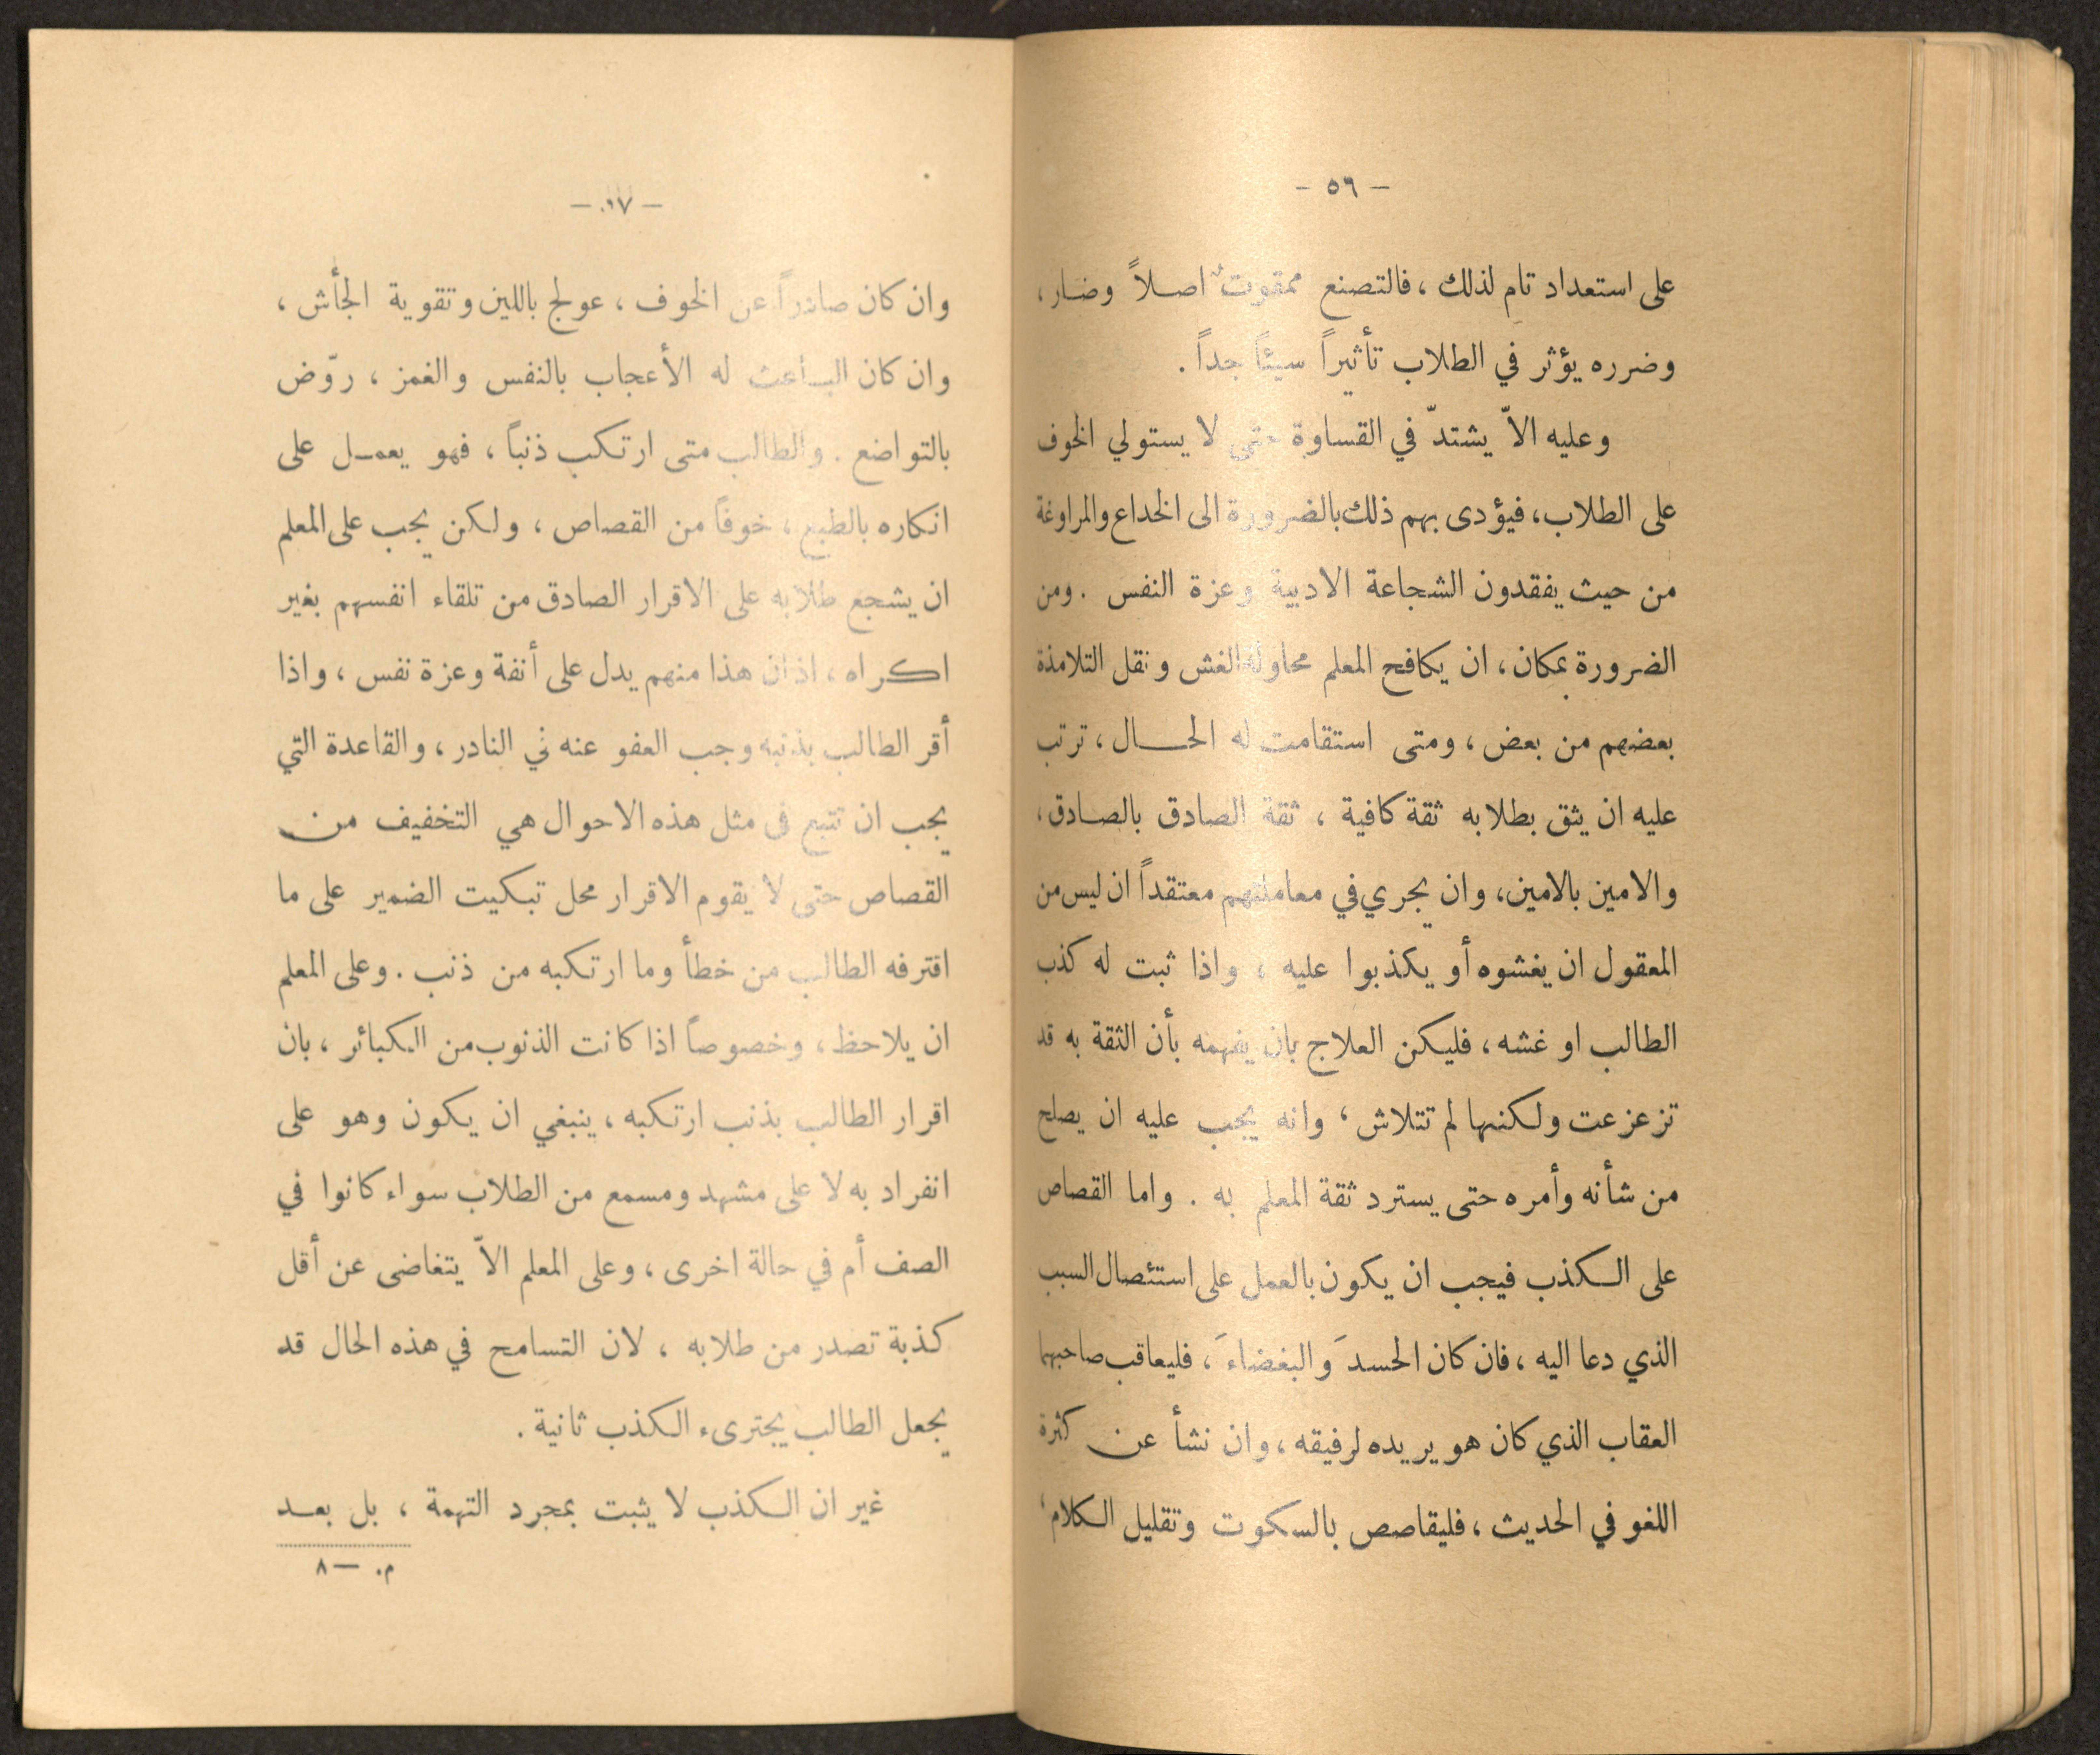 - ٥٦ -
على استعداد تام لذلك ، فالتصنع ممقوت اصلاً وضار ،
وضرره يؤثر في الطلاب تأثيراً سيئاً جداً .
وعليه الاّ يشتدّ في القساوة حتى لا يستولي الخوف
على الطلاب، فيؤدى بهم ذلك بالضرورة الى الخداع والمراوغة
من حيث يفقدون الشجاعة الادبية وعزة النفس . ومن
الضرورة بمكان ، ان يكافح المعلم محاولة الغش ونقل التلامذة
بعضهم من بعض ، ومتى استقامت له الحال ، ترتب
عليه ان يثق بطلابه ثقة كافية ، ثقة الصادق بالصادق ،
والامين بالامين، وان يجري في معاملتهم معتقداً ان ليس من
المعقول ان يغشوه أو يكذبوا عليه ، واذا ثبت له كذب
الطالب او غشه ، فليكن العلاج بان يفهمه بأن الثقة به قد
تزعزعت ولكنها لم تتلاش ، وانه يجب عليه ان يصلح
من شأنه وأمره حتى يسترد ثقة المعلم به . واما القصاص
على الكذب فيجب ان يكون بالعمل على استئصال السبب
الذي دعا اليه ، فان كان الحسدَ والبغضاءَ ، فليعاقب صاحبهما
العقاب الذي كان هو يريده لرفيقه ، وان نشأ عن كثرة
اللغو في الحديث ، فليقاصص بالسكوت وتقليل الكلام ،
وان كان صادراً عن الخوف ، عولج باللين وتقوية الجأش ،
وان كان الباعث له الأعجاب بالنفس والغمز ، روّض
بالتواضع . والطالب متى ارتكب ذنباً ، فهو يعمل على
انكاره بالطبع ، خوفاً من القصاص ، ولكن يجب على المعلم
ان يشجع طلابه على الاقرار الصادق من تلقاء انفسهم بغير
اكراه ، اذ ان هذا منهم يدل على أنفة وعزة نفس ، واذا
أقر الطالب بذنبه وجب العفو عنه في النادر ، والقاعدة التي
يجب ان تتبع في مثل هذه الاحوال هي التخفيف من
القصاص حتى لا يقوم الاقرار محل تبكيت الضمير على ما
اقترفه الطالب من خطأ وما ارتكبه من ذنب . وعلى المعلم
ان يلاحظ ، وخصوصاً اذا كانت الذنوب من الكبائر ، بان
اقرار الطالب بذنب ارتكبه ، ينبغي ان يكون وهو على
انفراد به لا على مشهد ومسمع من الطلاب سواء كانوا في
الصف أم في حالة اخرى ، وعلى المعلم الاّ يتغاضى عن أقل
كذبة تصدر من طلابه ، لان التسامح في هذه الحال قد
يجعل الطالب يجترىء الكذب ثانية .
غير ان الكذب لا يثبت بمجرد التهمة ، بل بعد
م. — ٨